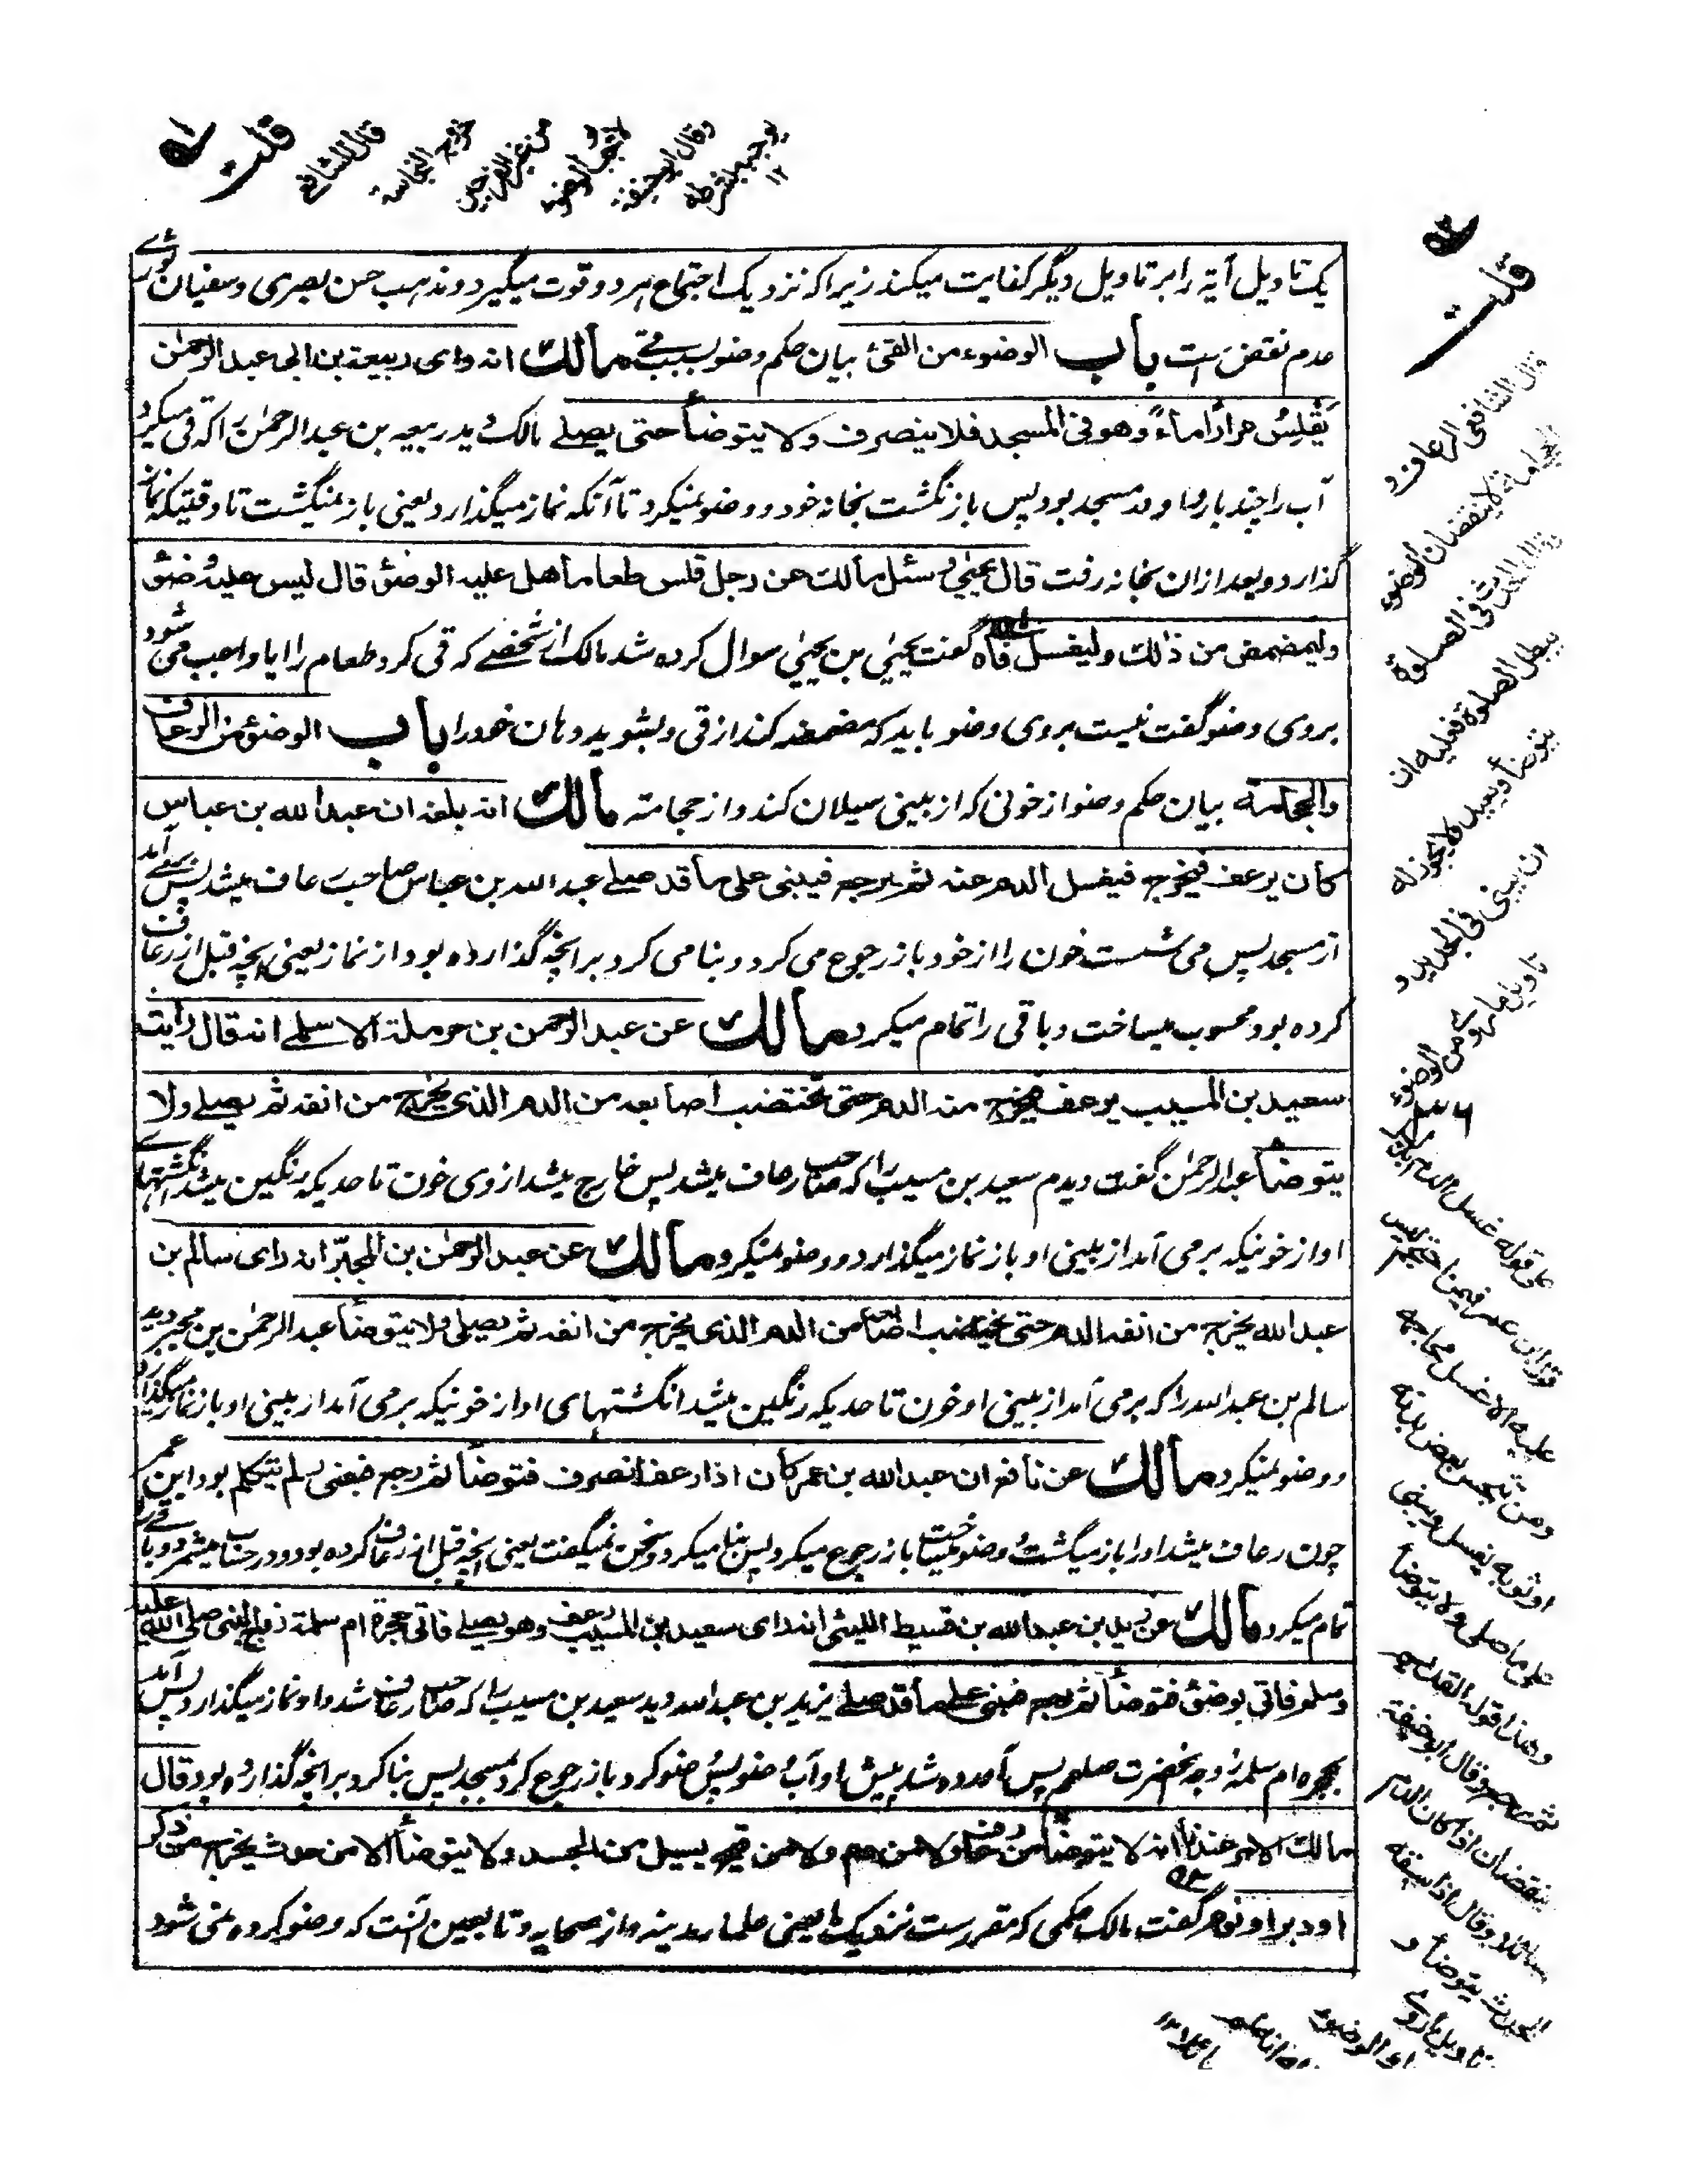 قلت
قال الشافعي
خروج النجاسة
من غير المخرجين
لا يوجب الوضوء
وقال ابو حنيفة
يوجبه بشرطه
١٢
یک تاویل آیة را بر تاویل دیگر کفایت میکند زیراکه نزدیک اجتماع هر دو قوت میگیرد و مذهب حسن بصری و سفیان ثوری
عدم نقض ست باب الوضوء من القئ بیان حکم وضو بسبب قے مالك انه رای ربیعة بن ابی عبد الرحمٰن
یَقْلِسُ مرارًا ماءً وهو فی المسجد فلا ینصرف ولا یتوضأ حتی یصلے مالک دید ربیعه بن عبد الرحمٰن را که قی میکرد
آب را چند بار و او در مسجد بود پس باز نگشت بخانه خود و وضو نمیکرد تا آنکه نماز میگذارد یعنی باز نمیگشت تا وقتیکه نماز
گذارد و بعد ازان بخانه رفت قال یحیٰی وسئل مالك عن رجل قلس طعاما هل علیه الوضوٴ قال لیس علیه وضوٴ
ولیمضمض من ذٰلك ولیغسل فاه گفت یحیٰی بن یحیٰی سوال کرده شد مالک از شخصے که قی کرد طعام را ایا واجب می شود
بروی وضو گفت نیست بروی وضو باید که مضمضه کند از قی و بشوید دهان خود را باب الوضوٴ من الرعاف
والحجامة بیان حکم وضو از خونی که از بینی سیلان کند و از حجامته مالك انه بلغه ان عبد الله بن عباس
کان یرعف فیخرج فیغسل الدم عنه ثم یرجع فیبنی علی ما قد صلے عبد الله بن عباس صاحب رعاف میشد پس بر می آمد
از مسجد پس می شست خون را از خود باز رجوع می کرد و بنا می کرد بر آنچه گذارده بود از نماز یعنی آنچه قبل از رعاف
کرده بود محسوب میساخت و باقی را تمام میکرد مالك عن عبد الرحمن بن حرملة الاسلمے انه قال رأیت
سعید بن المسیب یرعف فیخرج منه الدم حتی تختضب اصابعه من الدم الذی یخرج من انفه ثم یصلے ولا
یتوضأ عبد الرحمٰن گفت دیدم سعید بن مسیب را که صاحب رعاف میشد پس خارج میشد از وی خون تا حدیکه رنگین میشد انگشتهاے
او از خونیکه بر می آمد از بینی او باز نماز میگذارد و وضو نمیکرد مالك عن عبد الرحمٰن بن المجبّر انه رای سالم بن
عبد الله یخرج من انفه الدم حتی یختضب اصابعه من الدم الذی یخرج من انفه ثم یصلی ولا یتوضأ عبد الرحمٰن بن مجبر دید
سالم بن عبد الله را که بر می آمد از بینی او خون تا حدیکه رنگین میشد انگشتهای او از خونیکه بر می آمد از بینی او باز نماز میگذارد
و وضو نمیکرد مالك عن نافع ان عبد الله بن عمر کان اذا رعف انصرف فتوضأ ثم رجع فبنی ولم یتکلم بود ابن عمر
چون رعاف میشد او را باز میگشت و وضو میساخت باز رجوع میکرد پس بنا میکرد و سخن نمیگفت یعنی آنچه قبل از رعاف کرده بود در حساب میشمرد و باقی را
تمام میکرد مالك عن یزید بن عبد الله بن قسیط اللیثی انه رای سعید بن المسیب رعف وهو یصلے فاتی حجرة ام سلمة زوج النبی صلی الله علیه
وسلم فاتی بوضوٴ فتوضأ ثم رجع فبنی علی ما قد صلے یزید بن عبد الله دید سعید بن مسیب را که صاحب رعاف شد و او نماز میگذارد پس آمد
بحجره ام سلمه زوجه آنحضرت صلعم پس آورده شد پیش او آب وضو پس وضو کرد باز رجوع کرد بمسجد پس بنا کرد بر آنچه گذارده بود قال
مالك الامر عندنا انه لا یتوضأ من رعاف ولا من دم ولا من قیح یسیل من الجسد ولا یتوضأ الا من حدث یخرج من ذکر
او دبر او نوم گفت مالک حکمی که مقرر ست نزدیک ما یعنی علماء مدینه از صحابه و تابعین آنست که وضو کرده نمی شود
قلت
قال الشافعی الرعاف و
الحجامة لا ینقضان الوضوء
وقال الحدث فی الصلوة
یبطل الصلوة فعلیه ان
یتوضأ ویعید لا یجوز له
ان یبنی فی الجدید و
تاویل ما روی من الوضوء
٣٦
علی قوله غسل الدم
علیه الا غسل محاجمه
ومن تنجس بعض بدنه
او ثوبه یغسل ویبنی
علی ما صلی ولا یتوضأ
وهذا قوله القدیم
ثم رجع وقال ابو حنیفة
ینقضان اذا کان الدم
سائلا وقال اذا سبقه
الحدث یتوضأ و